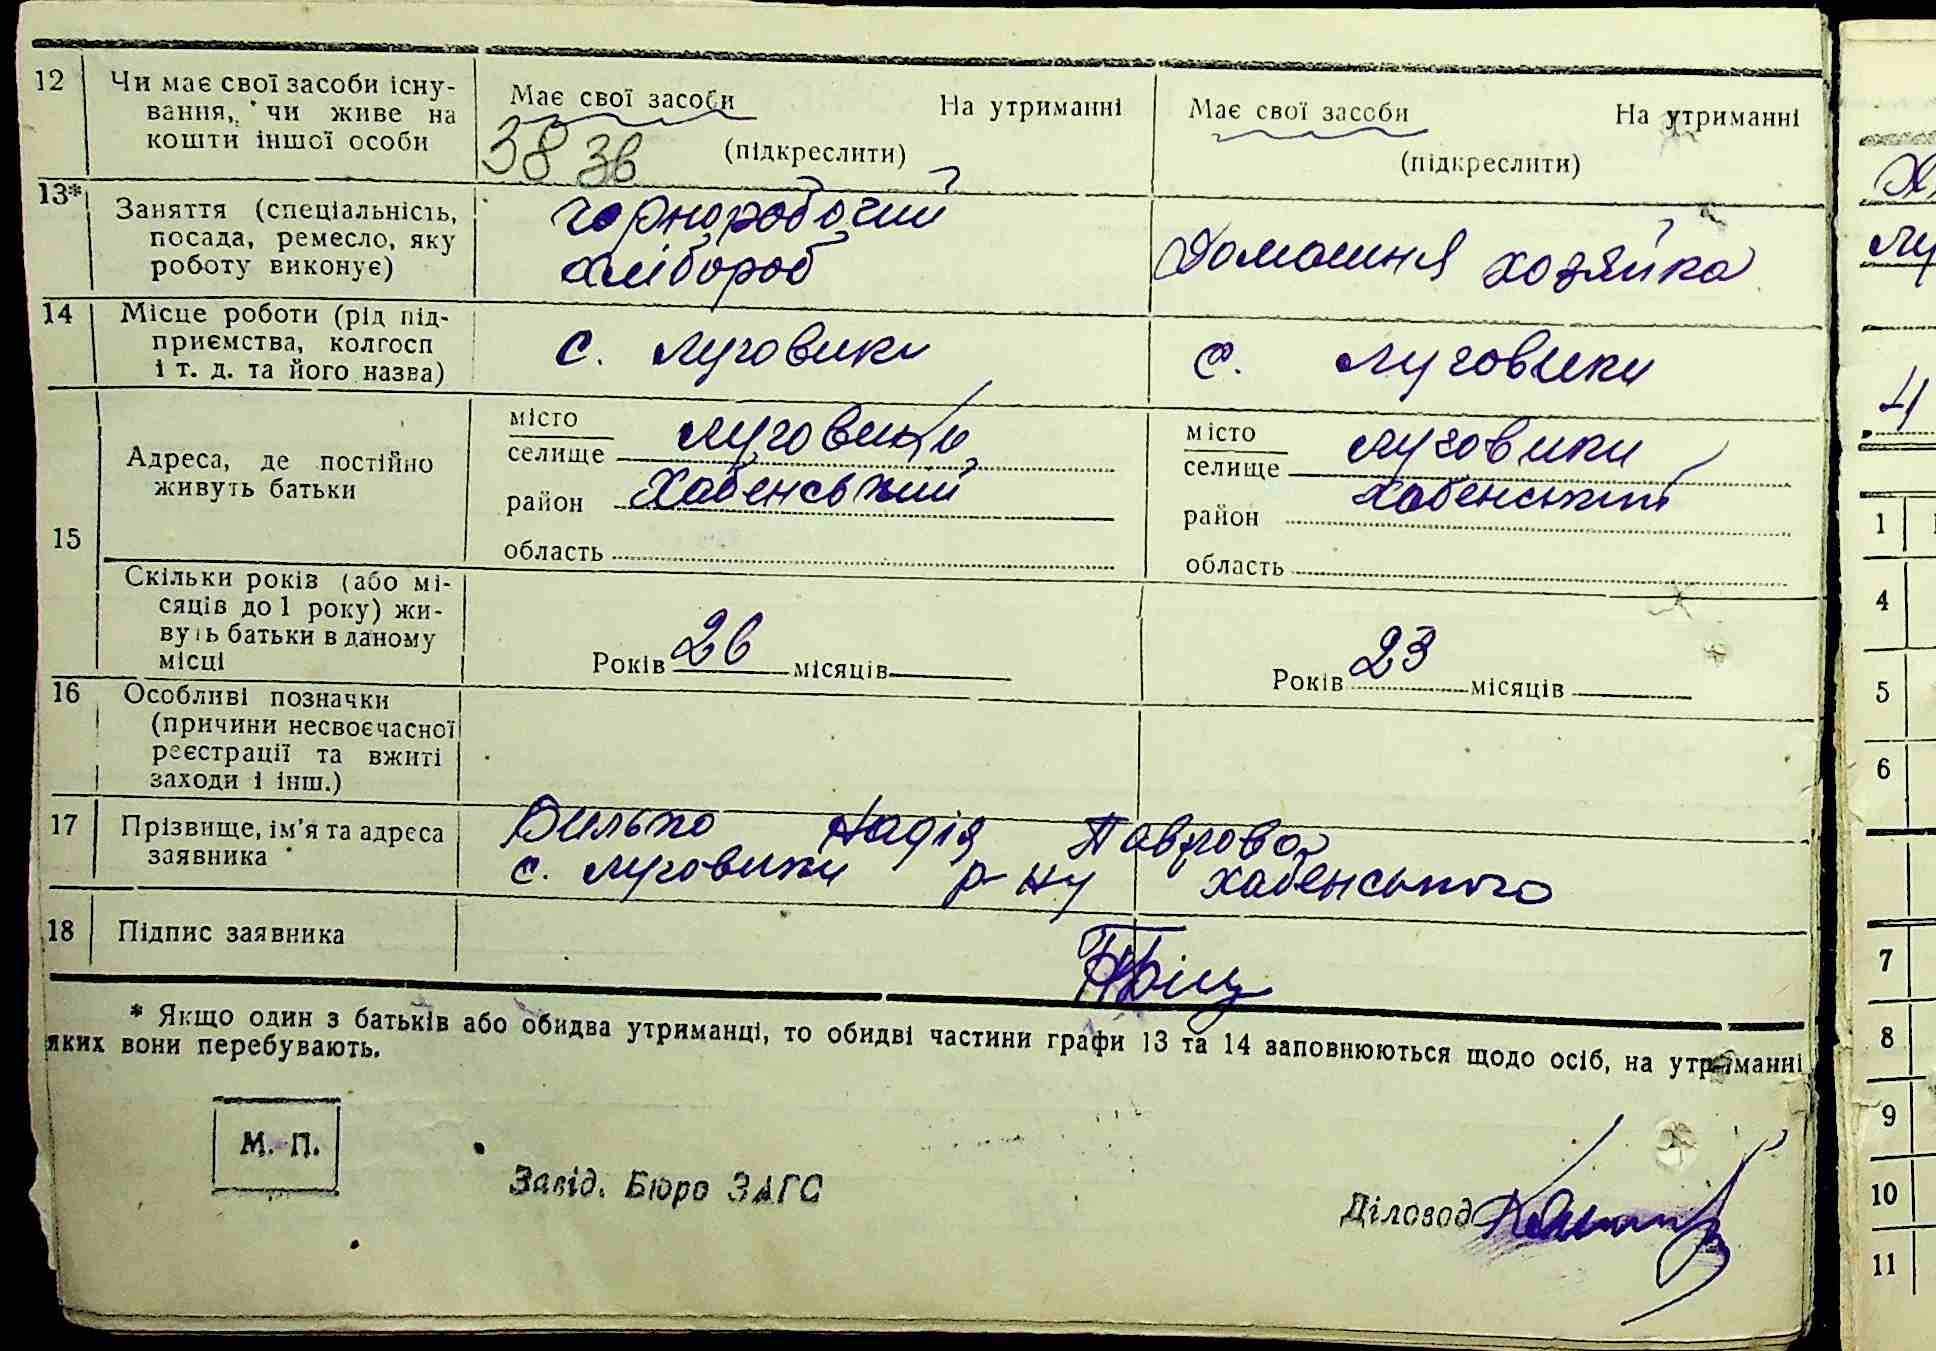 12
Чи має свої засоби існу-
вання, чи живе на
кошти іншої особи
Має свої засоби На утриманні
38 зв (підкреслити)
Має свої засоби На утриманні
(підкреслити)
13*
Заняття (спеціальність,
посада, ремесло, яку
роботу виконує)
чорноробочий
хлібороб
Домашня хозяйка
14
Місце роботи (рід під-
приємства, колгосп
і т. д. та його назва)
с. Луговики
с. Луговики
15
Адреса, де постійно
живуть батьки
місто
селище Луговики
район Хабенський
область
місто
селище Луговики
район Хабенський
область
Скільки років (або мі-
сяців до 1 року) жи-
вуть батьки в даному
місці
Років 26 місяців
Років 23 місяців
16
Особливі позначки
(причини несвоєчасної
реєстрації та вжиті
заходи і інш.)
17
Прізвище, ім’я та адреса
заявника
Надія
с. Луговики р-ну Хабенського
18
Підпис заявника
* Якщо один з батьків або обидва утриманці, то обидві частини графи 13 та 14 заповнюються щодо осіб, на утриманні
яких вони перебувають.
М. П.
Завід. Бюро ЗАГС
Діловод
1
4
5
6
7
8
9
10
11